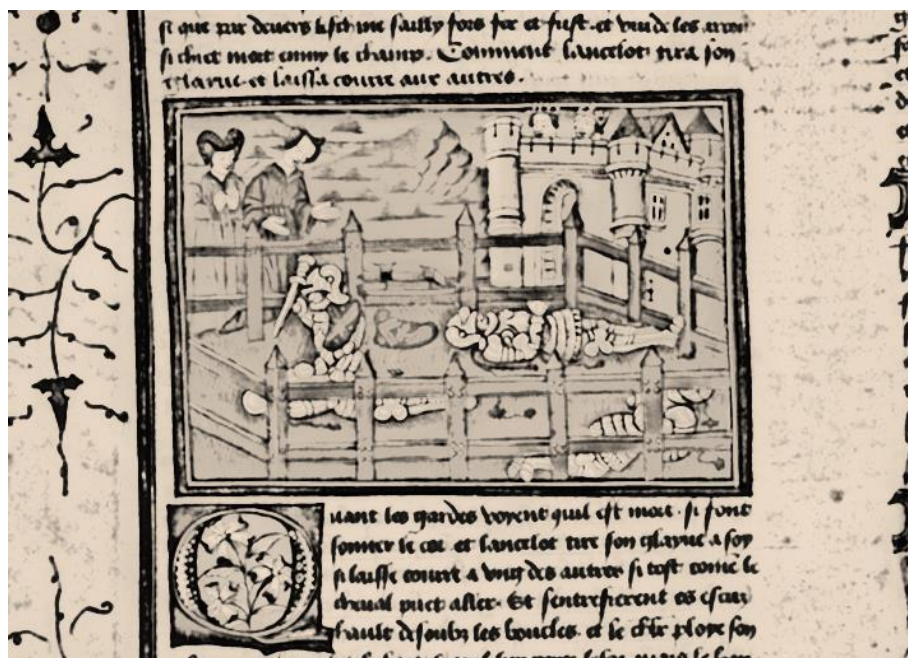 si que par devers lesch ine sailly fors fer et fust. et vuide les arcon
si chiet mort emmy le champ. Comment lancelot tira son
glaiue et laissa courre aux autres.
Quant les gardes voyent quil est mort. si font
sonner le cor. et lancelot tire son glayue a soy
si laisse courre a vng des autres si tost come le
cheual puet aller. Et sentrefierent es escuz
hault desoubz les boucles. et le chlr ploye son